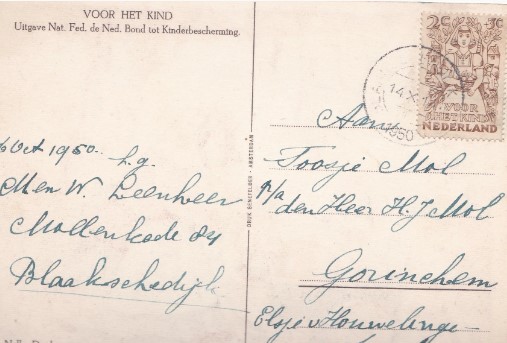 VOOR HET KIND
Uitgave Nat. Fed. de Ned. Bond tot Kinderbescherming.
Oct 1950. h.g.
Men W. Leenheer
Mollenkade 84
Blaakschedijk
DRUK SENEFELDER - AMSTERDAM
2C +3C
VOOR
HET KIND
NEDERLAND
14 X
1950
Aan
Toosje Mol
P/a den Heer H. J Mol
Gorinchem
Elsje v Houwelinge